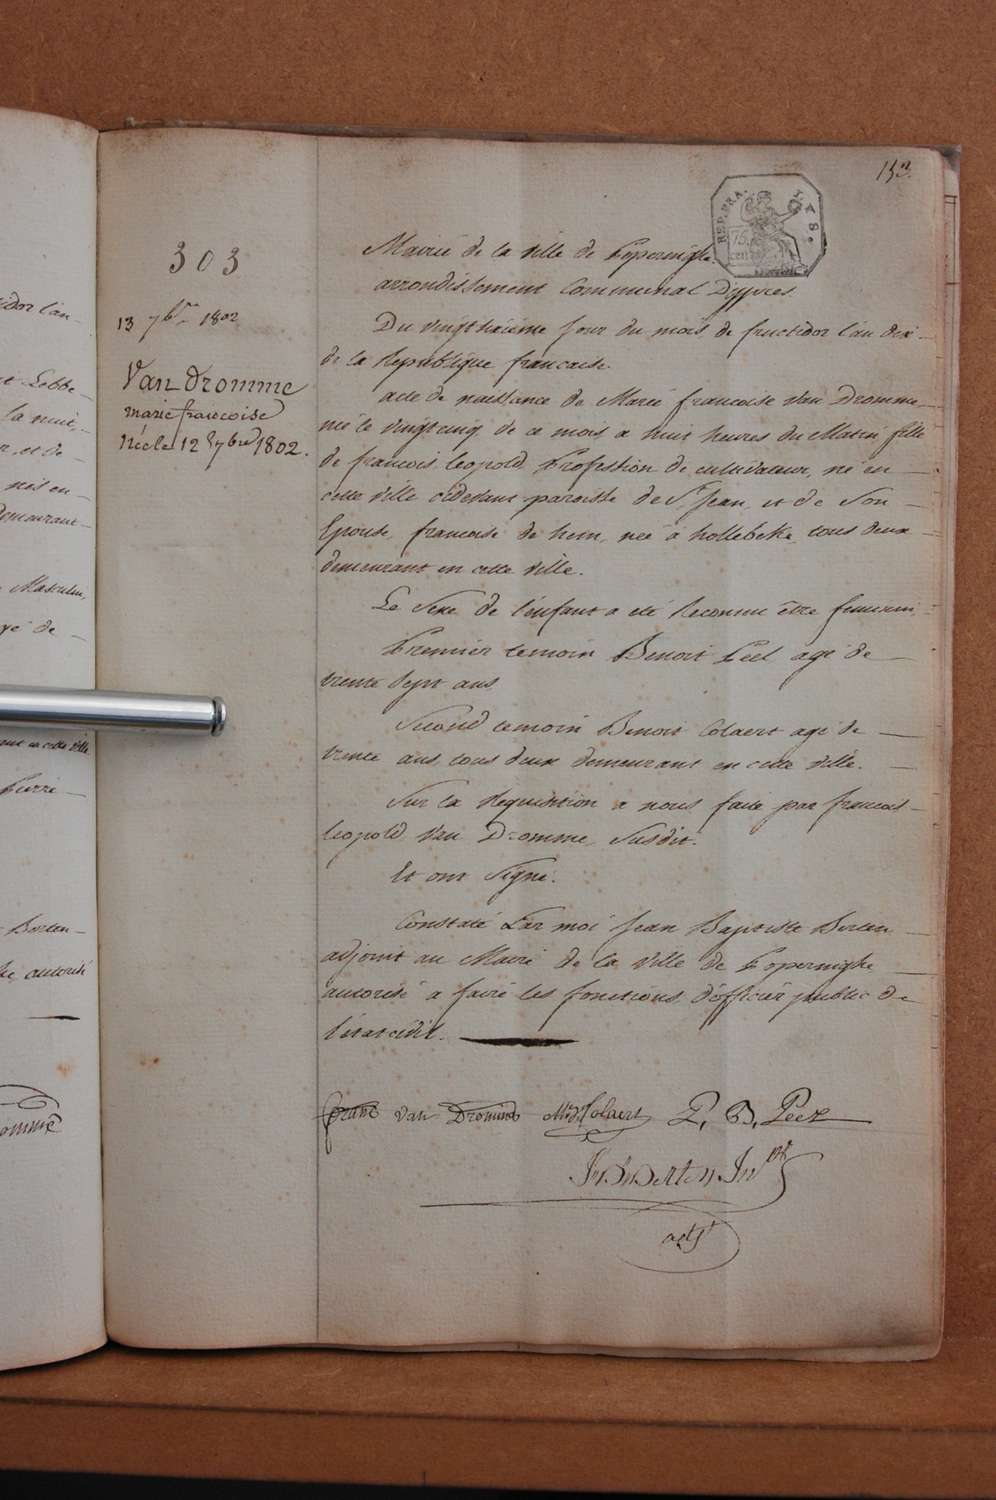 153.
REP. FRA.
75.
cent
303
13 7bre 1802
Van Dromme
marie francoise
Née le 12 7bre 1802.
Mairie de la ville de Poperinghe
arrondissement Communal D'ypres
Du vingt sixième jour du mois de fructidor l'an dix
de la République francaise.
acte de naissance de Marie francoise Van Dromme
née le vingt cinq de ce mois a huit heures du Matin, fille
de francois Leopold Profession de cultivateur, né en
cette ville cidevant paroisse de St Jean, et de Son
Epouse, francoise de hem, née à hollebeke, tous deux
demeurant en cette ville.
Le Sexe de l'enfant a eté Reconnu être feminin
Premier temoin Benoit Peel agé de
trente Sept ans
Second temoin Benoit Colaert agé de
trente ans tous deux demeurant en cette ville.
Sur la Requisition a nous faite par francois
Leopold Van Dromme, Susdit.
Et ont Signé.
Constaté Par moi Jean Baptiste Berten
adjoint au Maire de la ville de Poperinghe
autorisé a faire les fonctions d'officier public de
l'état civil.
franc van Dromme Colaert P, B, Peel
J B Berten
adjt
tidor l'an
et Lebbe
la nuit,
r, et de
neé en
demeurant
Masculin,
gé de
ant en cette ville
Pierre
Berten
autorisé
omme